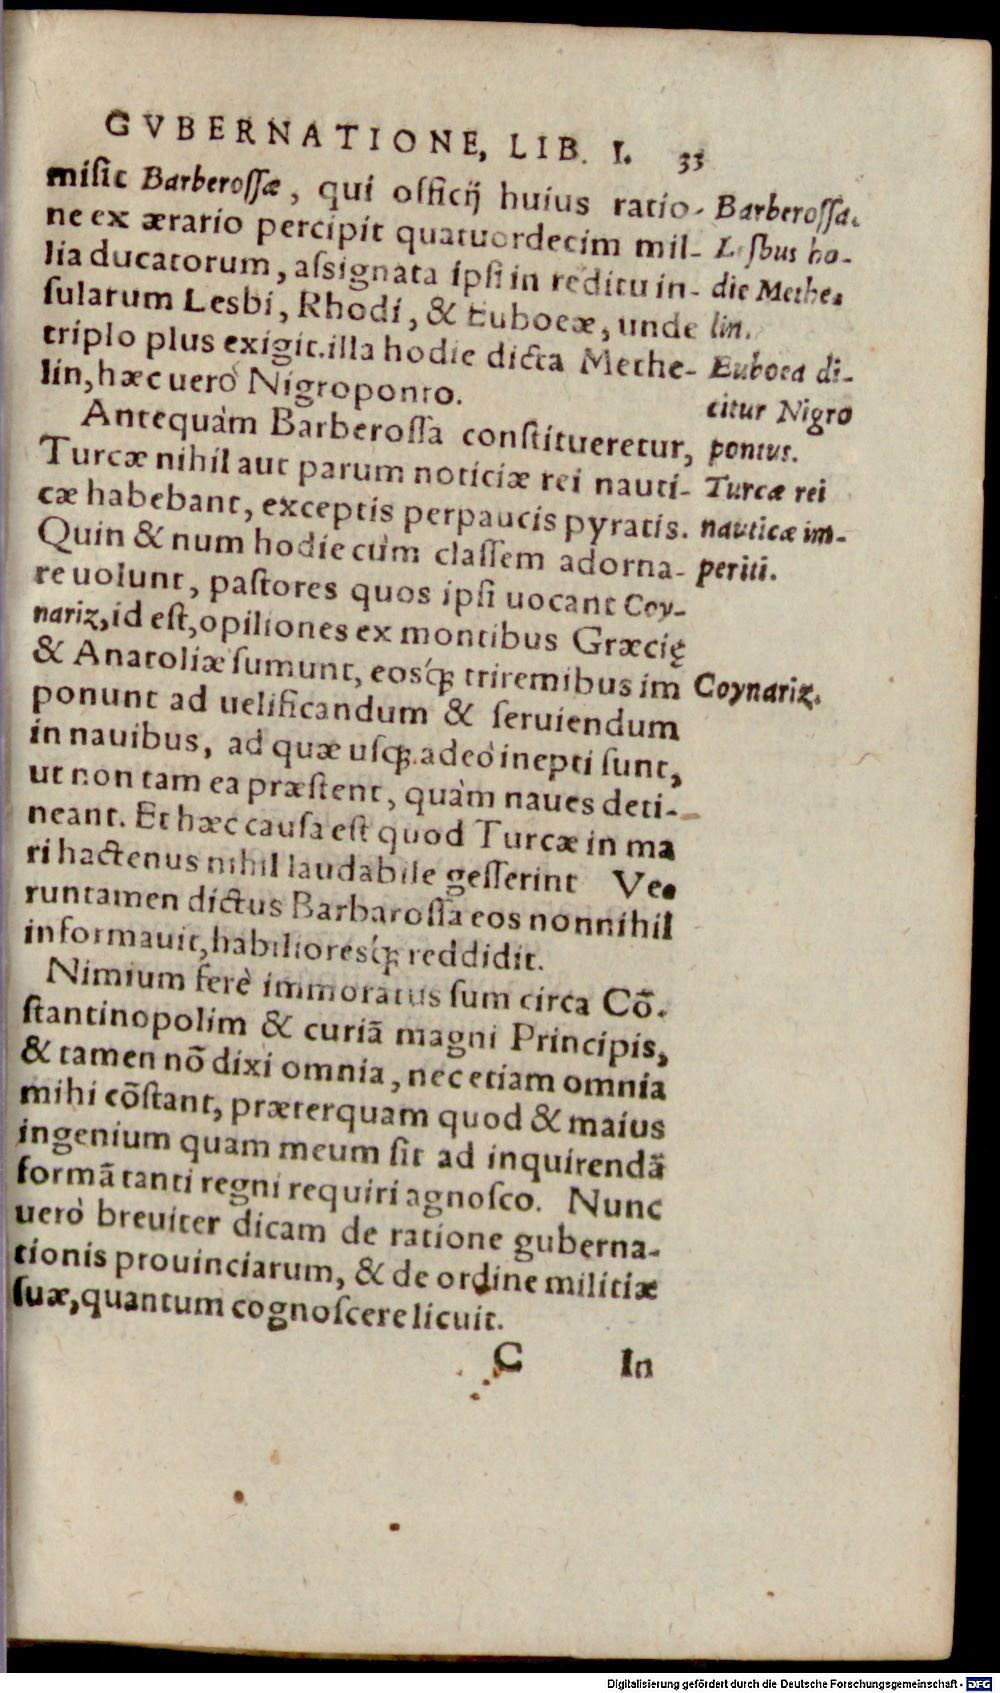 GVBERNATIONE, LIB. I. 33
misit Barberossæ, qui officij huius ratio-
ne ex ærario percipit quatuordecim mil-
lia ducatorum, assignata ipsi in reditu in-
sularum Lesbi, Rhodi, & Euboeæ, unde
triplo plus exigit. illa hodie dicta Methe-
lin, hæc uerò Nigroponto.
Antequàm Barberossa constitueretur,
Turcæ nihil aut parum noticiæ rei nauti-
cæ habebant, exceptis perpaucis pyratis.
Quin & num hodie cùm classem adorna-
re uolunt, pastores quos ipsi uocant Coy-
nariz, id est, opiliones ex montibus Græcię
& Anatoliæ sumunt, eosq́; triremibus im
ponunt ad uelificandum & seruiendum
in nauibus, ad quæ usq; adeò inepti sunt,
ut non tam ea præstent, quàm naues deti-
neant. Et hæc causa est quod Turcæ in ma
ri hactenus nihil laudabile gesserint Ve-
runtamen dictus Barbarossa eos nonnihil
informauit, habilioresq́; reddidit.
Nimium ferè immoratus sum circa Cō-
stantinopolim & curiā magni Principis,
& tamen nō dixi omnia, nec etiam omnia
mihi cōstant, præterquam quod & maius
ingenium quam meum sit ad inquirendā
formā tanti regni requiri agnosco. Nunc
uerò breuiter dicam de ratione guberna-
tionis prouinciarum, & de ordine militiæ
suæ, quantum cognoscere licuit.
C In
Barberossa.
Lesbus ho-
die Methe-
lin.
Euboea di-
citur Nigro
pontus.
Turcæ rei
nauticæ im-
periti.
Coynariz.
Digitalisierung gefördert durch die Deutsche Forschungsgemeinschaft - DFG